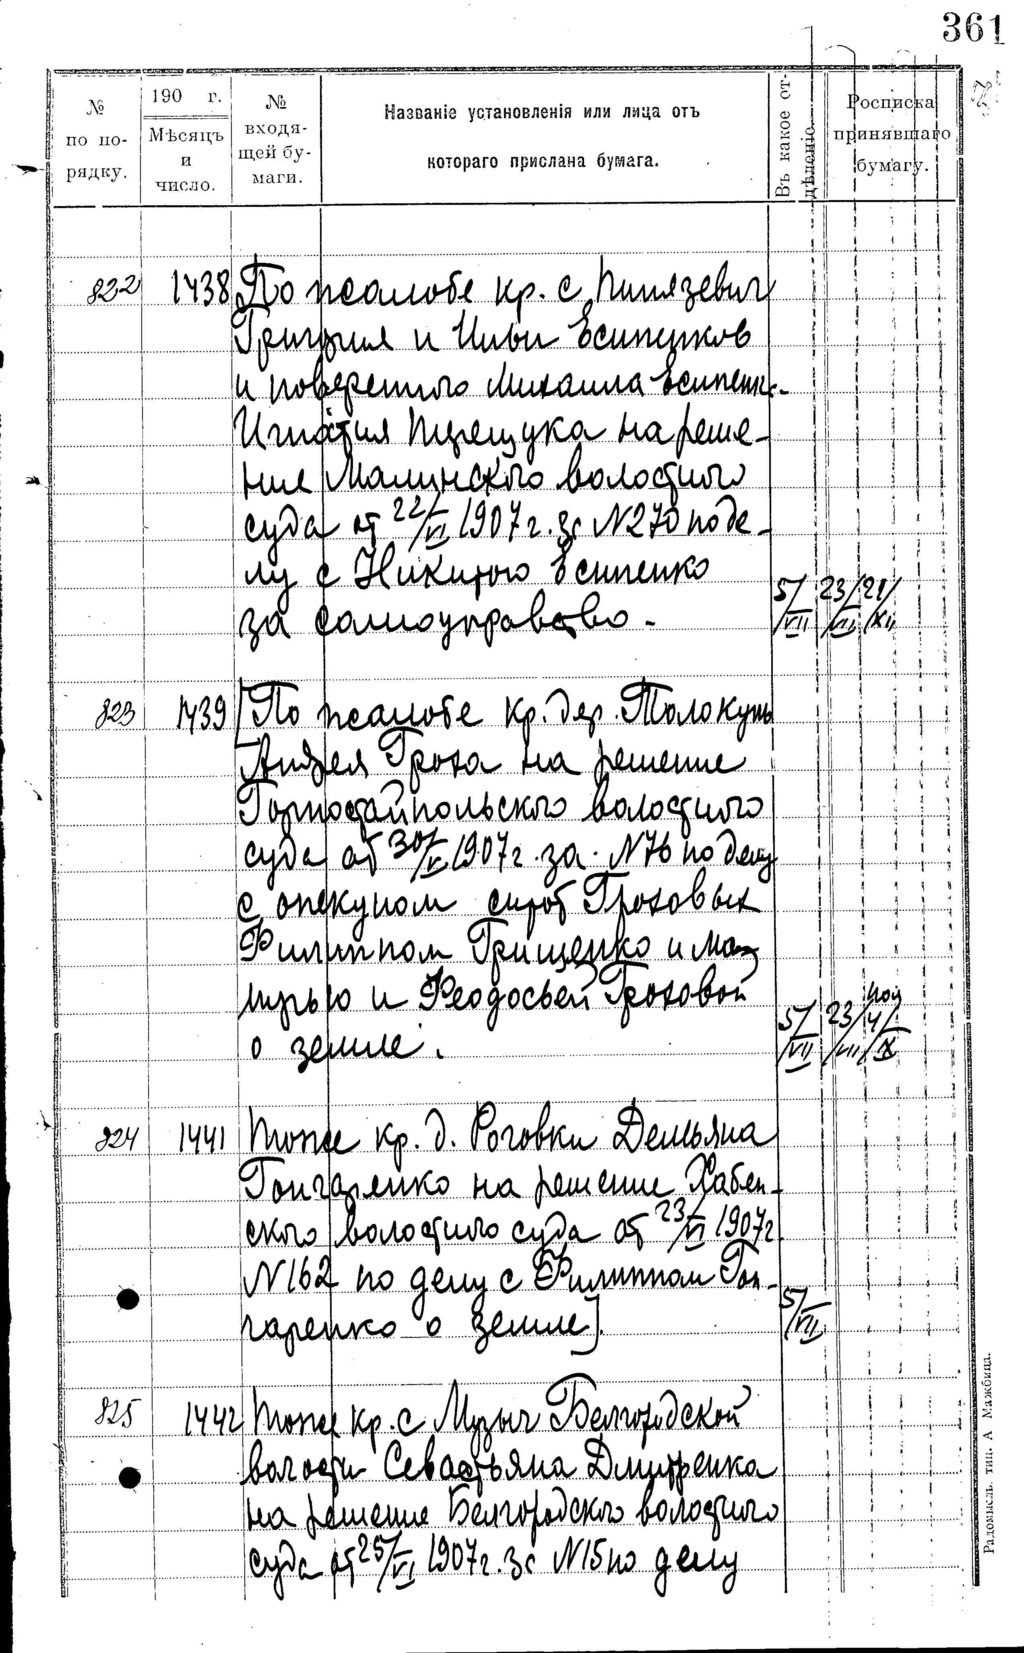 361
№ по порядку.
190 г. Мѣсяцъ и число.
№ входящей бумаги.
Названіе установленія или лица отъ котораго прислана бумага.
Въ какое отдѣленіе.
Росписка принявшаго бумагу.
822 1438 По жалобе кр. с. Пинязевич
Григория и Ильи Есипенков
и поверенного Михаила Есипенк-
Игнатия на реше-
ние Малинского волостного
суда от 22/VI 1907 г. за N270 по де-
лу с Никитою Есипенко
за самоуправство. 5/VII 23/VII 21/XII
823 1439 [По жалобе кр. дер. Толокунь
Андрея Гроха на решение
Горностайпольского волостного
суда от 30/V 1907 г. за N76 по делу
с опекуном сирот Гроховых
Филиппом Грищенко и ма-
терью и Феодосьей Гроховой
о земле. 5/VII 23/VII 4/IX
824 1441 Тоже кр. д. Роговки Демьяна
Гончаренко на решение Хабен-
ского волостного суда от 23/VI 1907 г
N162 по делу с Филиппом Гон-
чаренко о земле]. 5/VII
825 1442 Тоже кр. с Музыч Белгородской
волости Севастьяна Дмитренка
на решение Белгородского волостного
суда от 25/VI 1907 г. за N15 по делу
Радомысль. тип. А Мажбица.